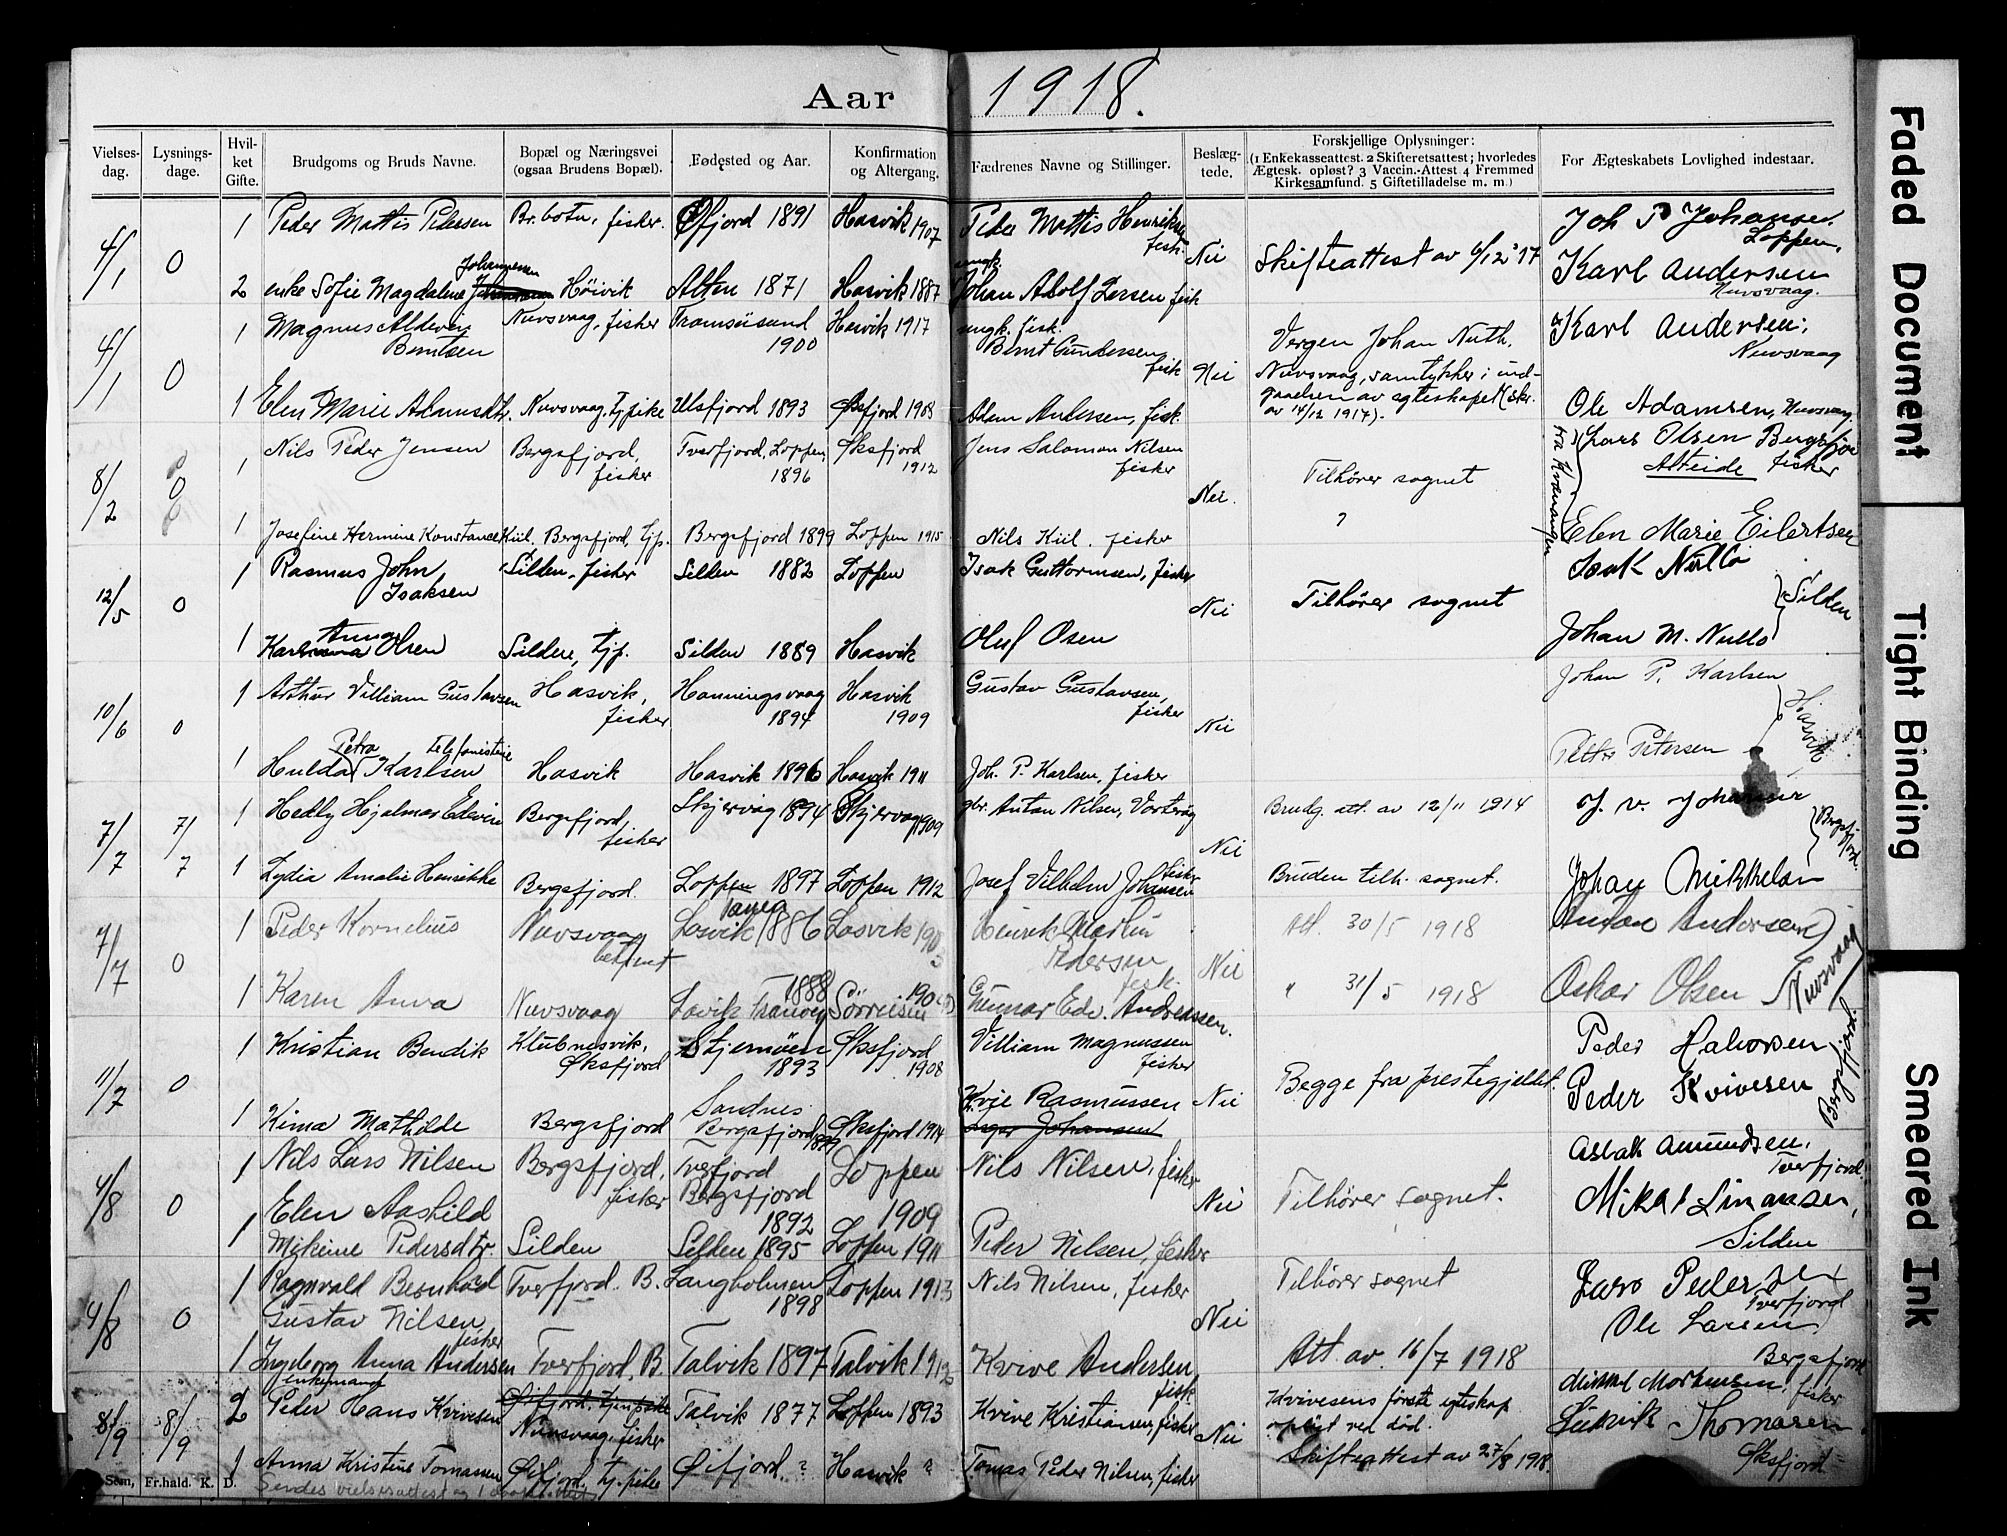 Aar 1918.
Vielses-dag. Lysnings-dage. Hvil-ket Gifte. Brudgoms og Bruds Navne. Bopæl og Næringsvei (ogsaa Brudens Bopæl). Fødested og Aar. Konfirmation og Altergang. Fædrenes Navne og Stillinger. Beslæg-tede. Forskjellige Oplysninger: (1 Enkekasseattest. 2 Skifteretsattest; hvorledes Ægtesk. opløst? 3 Vaccin.-Attest 4 Fremmed Kirkesamfund. 5 Giftetilladelse m. m.) For Ægteskabets Lovlighed indestaar.
4/1 0 1 Peder Mattis Pedersen Br.botn, fisker. Øfjord 1891 Hasvik 1907 Peder Mattis Henriksen fisk. Nei Skifteattest av 6/12 '17 Joh P Johansen Loppen.
2 enke Sofie Magdalene Johannesen Høivik Alten 1871 Hasvik 1887 Johan Adolf Larsen fisk Karl Andersen Nuvsvaag.
4/1 0 1 Magnus Aldevin Berntsen Nuvsvaag, fisker Tromsøsund 1900 Hasvik 1917 ungk. fisk. Bernt Gundersen fisk Nei Vergen Johan Nuth, Nuvsvaag, samtykker i ind-gaaelsen av egteskapet (skr. av 14/12 1917). Karl Andersen, Nuvsvaag
1 Elen Marie Adamsdtr. Nuvsvaag, tj.pike Ulsfjord 1893 Øksfjord 1908 Adam Andersen, fisk. Ole Adamsen, Nuvsvaag.
8/2 0 1 Nils Peder Jensen Bergsfjord, fisker Tverfjord, Loppen 1896 Øksfjord 1912 Jens Salamon Nilsen fisker Nei. Tilhører sognet Lars Olsen Bergsfjor Alteide fisker
fra Kvænangen
1 Josefine Hermine Konstance Kiil, Bergsfjord, tjp. Bergsfjord 1899 Loppen 1915 Nils Kiil, fisker ? Elen Marie Eilertsen
12/5 0 1 Rasmus John Isaksen Silden, fisker Silden 1882 Loppen Isak Guttormsen, fisker Nei Tilhører sognet Isak Nullo
1 Anna Olsen Silden, tjp. Silden 1889 Hasvik Oluf Osen Johan M. Nullo Silden
10/6 0 1 Arthur Villiam Gustavsen Hasvik, fisker Honningsvaag 1894 Hasvik 1909 Gustav Gustavsen, fisker Nei Johan P. Karlsen
1 Hulda Petra Karlsen telefonistine Hasvik Hasvik 1896 Hasvik 1911 Joh. P. Karlsen, fisker Petter Petersen Hasvik
7/7 7/7 1 Hedly Hjalmar Edvin Bergsfjord, fisker Skjervøg 1894 Skjervøg 1909 gbr. Anton Nilsen, Vorterøy Nei Brudg. att. av 12/11 1914 J. V. Johansen
1 Lydia Amalie Henrikke Bergsfjord. Loppen 1897 Loppen 1912 Josef Vilhelm Johansen fisker Bruden tilh. sognet. Johan Mikkelsen Bergsfjord
7/7 0 1 Peder Kornelius Nuvsvaag Losvik 1886 Losvik 1903 Henrik Martin Pedersen fisk. Nei Att. 30/5 1918 Anton Andersen
1 Karen Anna Nuvsvaag Lavik Tranøy 1888 Sørreisen Gunnar Edv. Andreassen. " 31/5 1918 Oskar Olsen Nuvsvaag
11/7 0 1 Kristian Bendik Klubnesvik, Øksfjord Stjernøen 1893 Øksfjord 1908 Villiam Magnussen fisker Nei Begge fra prestegjeldet. Peder Halvorsen
1 Kima Mathilde Bergsfjord Sandnes Bergsfjord Øksfjord 1914 Kvie Rasmussen Peder Kvivesen Bergsfjord.
4/8 0 1 Nils Lars Nilsen Bergsfjord, fisker Tverfjord Bergsfjord 1892 Loppen 1909 Nils Nilsen, fisker Nei Tilhører sognet. Aslak Amundsen, Tverfjord
1 Elen Aashild Mikeine Pedersdtr. Silden Silden 1895 Loppen 1911 Peder Nilsen, fisker Mikal Simonsen, Silden
4/8 0 1 Ragnvald Bernhard Gustav Nilsen fisker Tverfjord. B. Langholmen 1898 Loppen 1913 Nils Nilsen, fisker Nei Tilhører sognet Lars Pedersen Tverfjord
1 Ingeborg Anna Andersen Tverfjord, B. Talvik 1897 Talvik 1912 Kvive Andersen fisk. Att. av. 16/7 1918 Ole Larsen Bergsfjord
8/9 8/9 2 enkemand Peder Hans Kvivesen Øifjord, tjenpike Nuvsvaag, fisker Talvik 1877 Loppen 1893 Kvive Kristiansen, fisker Nei Kvivesens første egteskap opløst ved død. Mikkel Mortensen, fisker
1 Anna Kristine Tomassen Øifjord, tj.pike Øifjord ? Hasvik ? Tomas Peder Nilsen, fisker Skifteattest av 27/8 1918. Ludvik Thomasen Øksfjord
Sem, Fr.hald. K. D.
Sendes vielsesattest og
Faded Document
Tight Binding
Smeared Ink